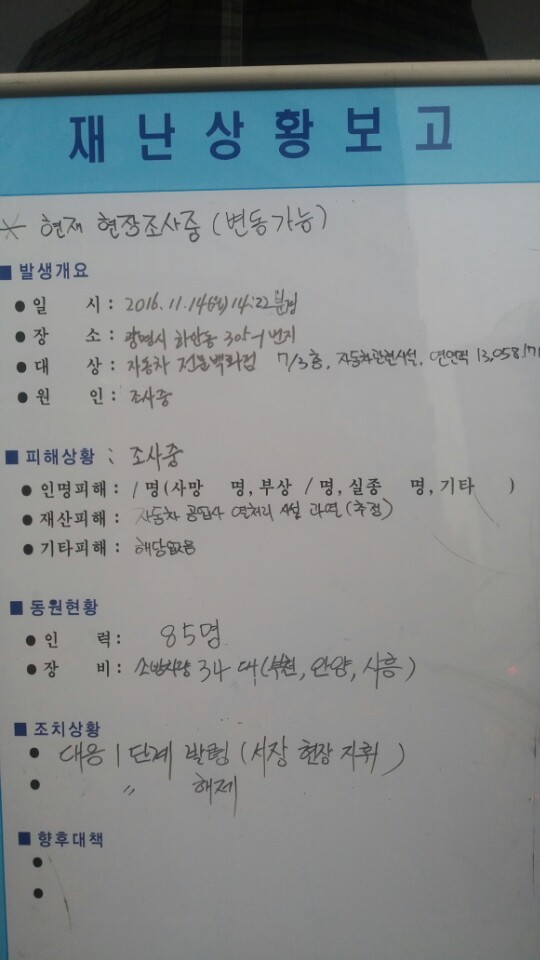 재난상황보고
* 현재 현장조사중 (변동가능)
■ 발생개요
● 일 시 : 2016.11.14(월) 14:22분경
● 장 소 : 광명시 하안동 305-1번지
● 대 상 : 자동차 전문백화점 7/3층, 자동차관련시설, 연면적 13,058.17
● 원 인 : 조사중
■ 피해상황 : 조사중
● 인명피해 : 1명(사망 명, 부상 1명, 실종 명, 기타 )
● 재산피해 : 자동차 공업사 열처리 시설 과열(추정)
● 기타피해 : 해당없음
■ 동원현황
● 인 력 : 85명
● 장 비 : 소방차량 34대(부천, 안양, 시흥)
■ 조치상황
● 대응 1단계 발령 (서장 현장 지휘)
● 〃 해제
■ 향후대책
●
●